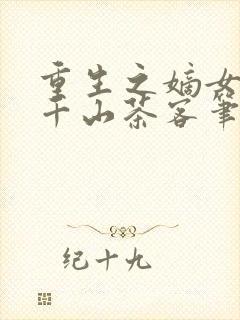 重生之嫡女
千山茶客筆
纪十九